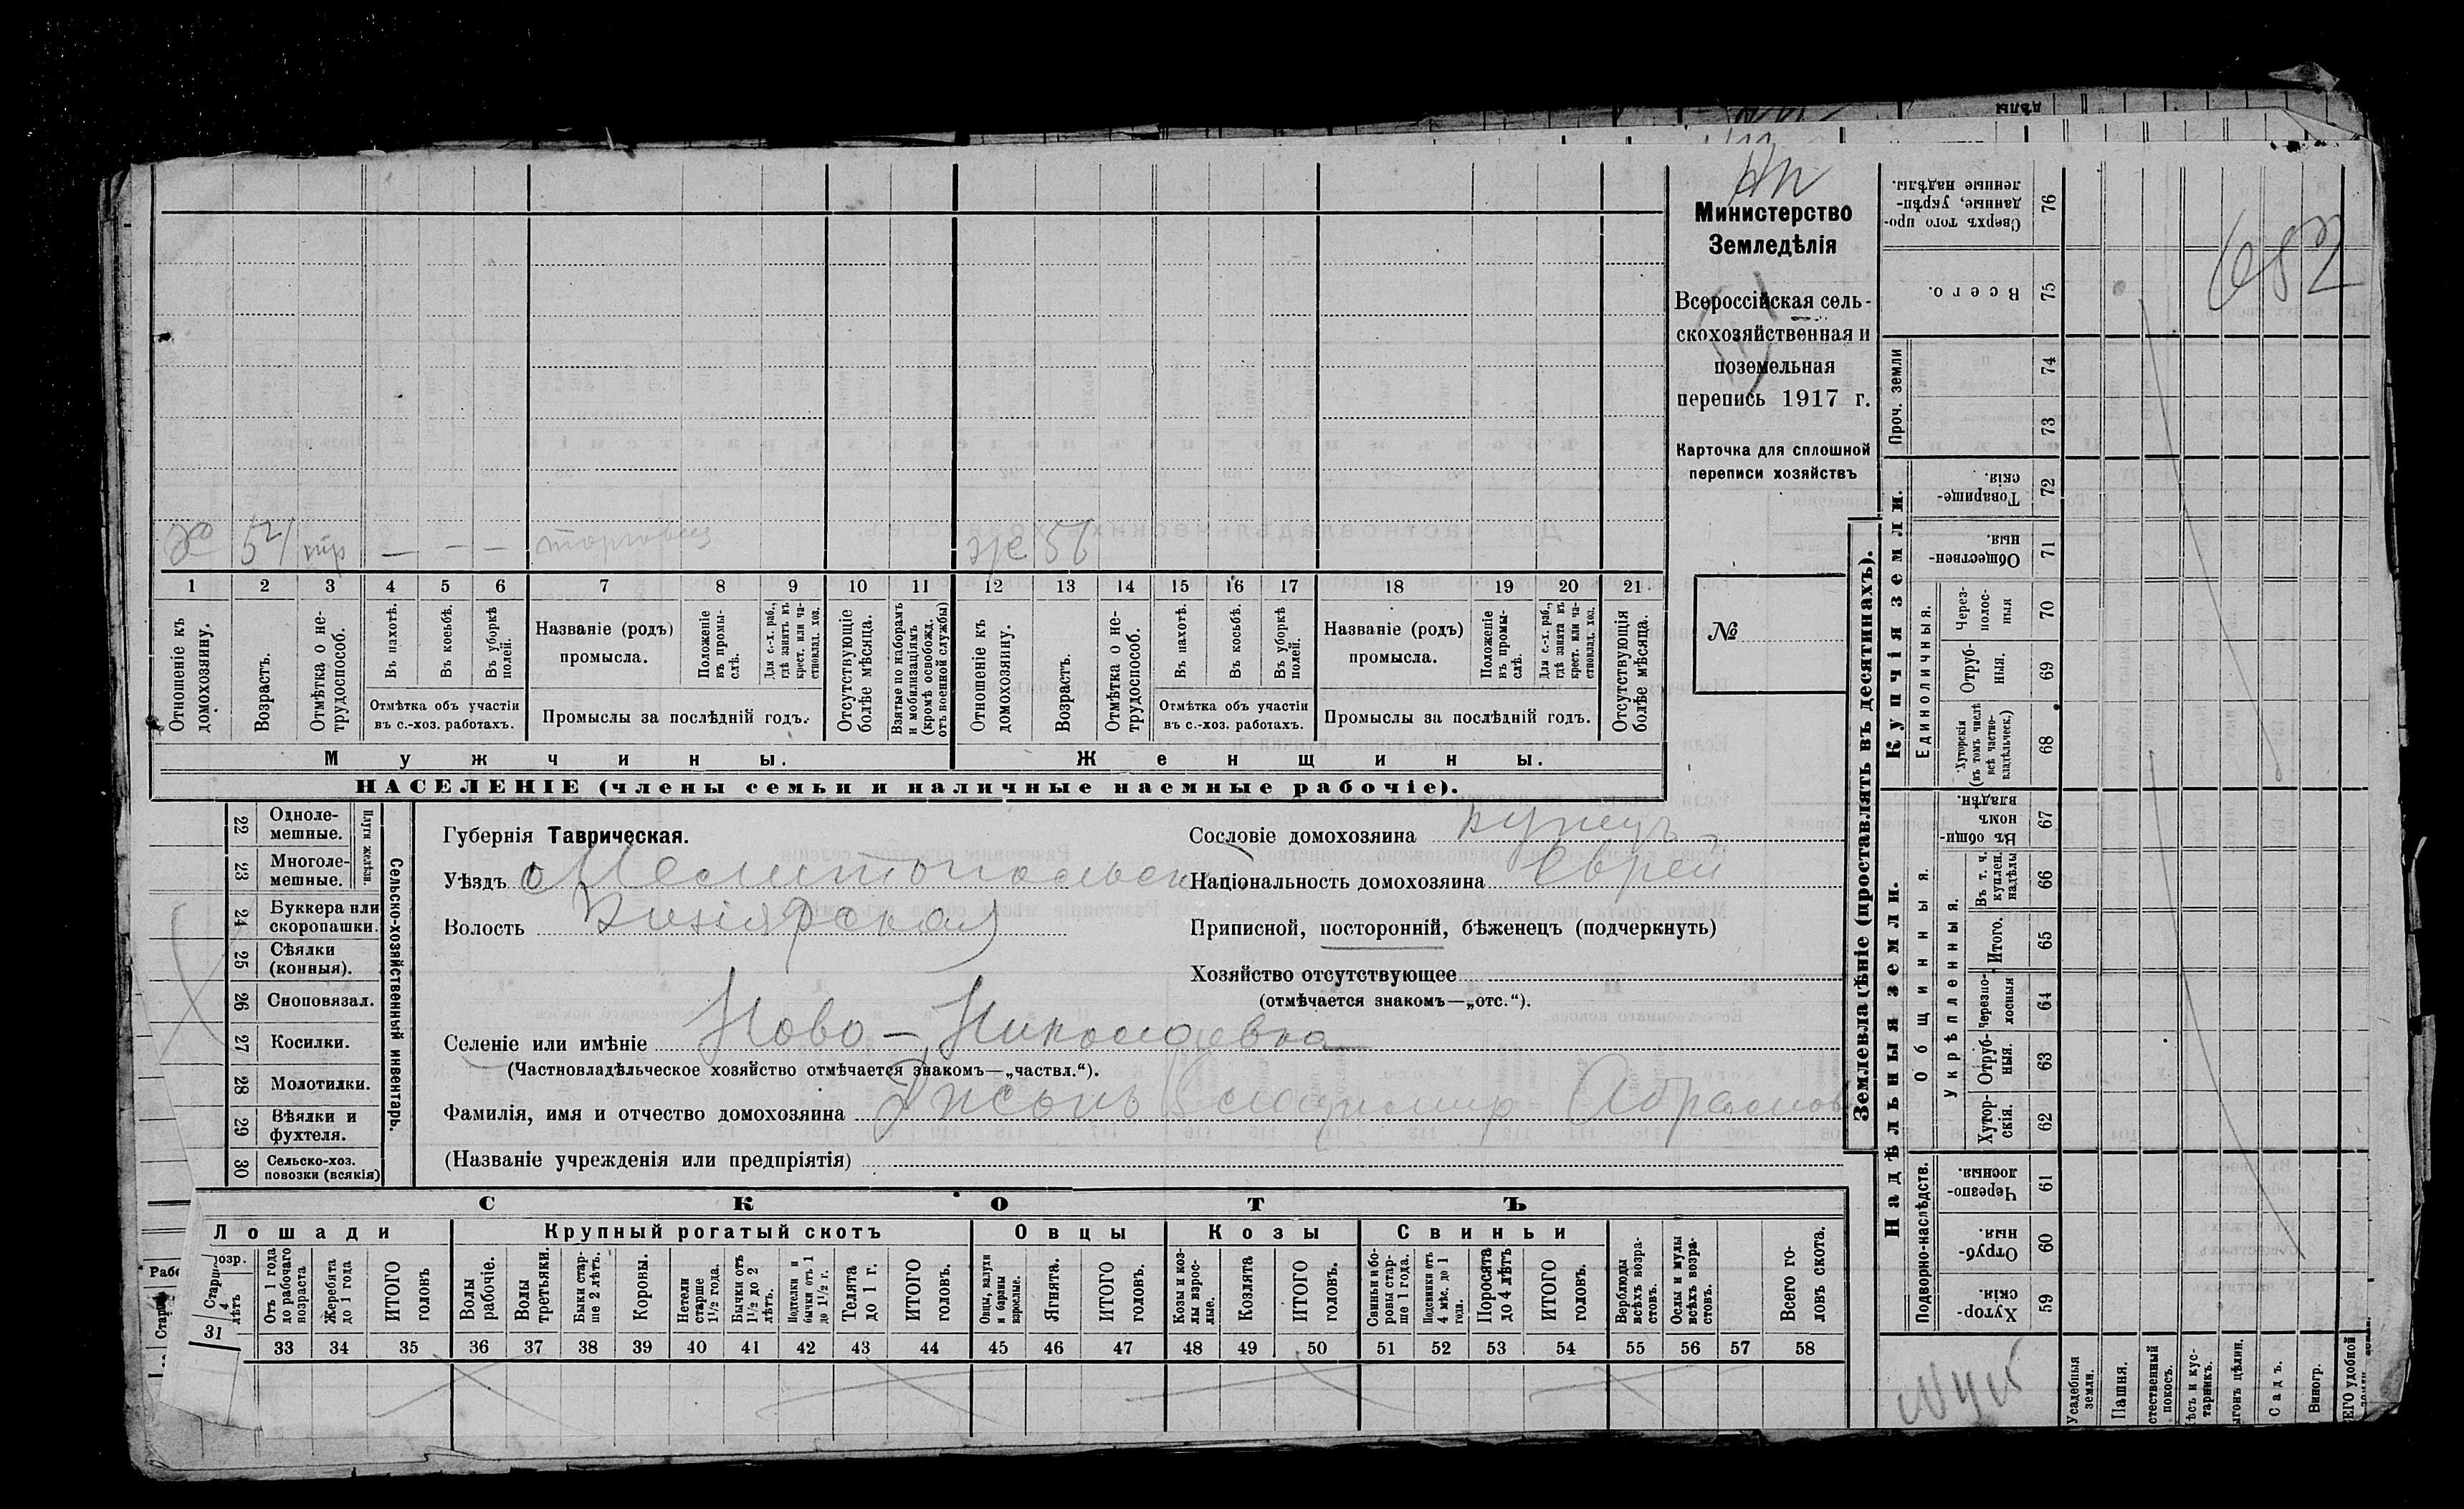 дѣлы
Министерство
Земледѣлія
Всероссійская сель-
скохозяйственная и
поземельная
перепись 1917 г.
Карточка для сплошной
переписи хозяйствъ
№
торговец
1 2 3 4 5 6 7 8 9 10 11 12 13 14 15 16 17 18 19 20 21
Отношеніе къ домохозяину.
Возрастъ.
Отмѣтка о не-трудоспособ.
Въ пахотѣ.
Въ косьбѣ.
Въ уборкѣ полей.
Отмѣтка объ участіи
въ с.-хоз. работахъ.
Названіе (родъ)
промысла.
Положеніе въ промы-слѣ.
Для с.-х. раб., гдѣ занятъ въ крест. или ча-стновлад. хоз.
Промыслы за послѣдній годъ.
Отсутствующіе болѣе мѣсяца.
Взятые по наборамъ и мобилизаціямъ (кромѣ освобожд. отъ военной службы)
Отношеніе къ домохозяину.
Возрастъ.
Отмѣтка о не-трудоспособ.
Въ пахотѣ.
Въ косьбѣ.
Въ уборкѣ полей.
Отмѣтка объ участіи
въ с.-хоз. работахъ.
Названіе (родъ)
промысла.
Положеніе въ промы-слѣ.
Для с.-х. раб., гдѣ занята въ крест. или ча-стновлад. хоз.
Промыслы за послѣдній годъ.
Отсутствующія болѣе мѣсяца.
Мужчины.
Женщины.
НАСЕЛЕНІЕ (члены семьи и наличные наемные рабочіе).
22 Одноле-мешные.
23 Многоле-мешные.
Плуги желѣзн.
24 Буккера или скоропашки.
25 Сѣялки (конныя).
26 Сноповязал.
27 Косилки.
28 Молотилки.
29 Вѣялки и фухтеля.
30 Сельско-хоз. повозки (всякія)
Сельско-хозяйственный инвентарь.
Губернія Таврическая.
Уѣздъ Мелитопольскій
Волость
Сословіе домохозяина купецъ
Національность домохозяина еврей
Приписной, посторонній, бѣженецъ (подчеркнуть)
Хозяйство отсутствующее
(отмѣчается знакомъ—„отс.“).
Селеніе или имѣніе Ново-Николаевка
(Частновладѣльческое хозяйство отмѣчается знакомъ—„частвл.“).
Фамилія, имя и отчество домохозяина
(Названіе учрежденія или предпріятія)
СКОТЪ
Лошади
Крупный рогатый скотъ
Овцы
Козы
Свиньи
Старше 4 лѣтъ
Отъ 1 года до рабочаго возраста
Жеребята до 1 года
ИТОГО головъ
Волы рабочіе.
Волы третьяки.
Быки стар-ше 2 лѣтъ.
Коровы.
Нетели старше 1½ года.
Бычки отъ 1½ до 2 лѣтъ.
Подтелки и бычки отъ 1 до 1½ г.
Телята до 1 г.
ИТОГО головъ.
Овцы, валухи и бараны взрослые.
Ягнята.
ИТОГО головъ.
Козы и коз-лы взрос-лые.
Козлята
ИТОГО головъ.
Свиньи и бо-ровы стар-ше 1 года.
Подсвинки отъ 4 мѣс. до 1 года.
Поросята до 4 лѣтъ
ИТОГО головъ.
Верблюды всѣхъ возра-стовъ.
Ослы и мулы всѣхъ возра-стовъ.
Всего го-ловъ скота.
31 33 34 35 36 37 38 39 40 41 42 43 44 45 46 47 48 49 50 51 52 53 54 55 56 57 58
Землевладѣніе (проставлять въ десятинахъ).
Купчія земли.
Надѣльныя земли.
Сверхъ того про-данные, укрѣп-ленные надѣлы. 76
Всего. 75
Проч. земли 74 73
Товарище-скія. 72
Обществен-ныя. 71
Единоличныя.
Через-полос-ныя 70
Отруб-ныя. 69
Хуторскія (въ томъ числѣ всѣ частно-владѣльческ.) 68
Въ общи-номъ владѣн. 67
Общинныя.
Въ т. ч. куплен. надѣлы 66
Укрѣпленныя.
Итого. 65
Черезпо-лосныя 64
Отруб-ныя. 63
Хутор-скія. 62
Подворно-наслѣдств.
Черезпо-лосныя. 61
Отруб-ныя. 60
Хутор-скія. 59
Усадебныя земли.
Пашня.
С а д ъ.
Виногр.
682